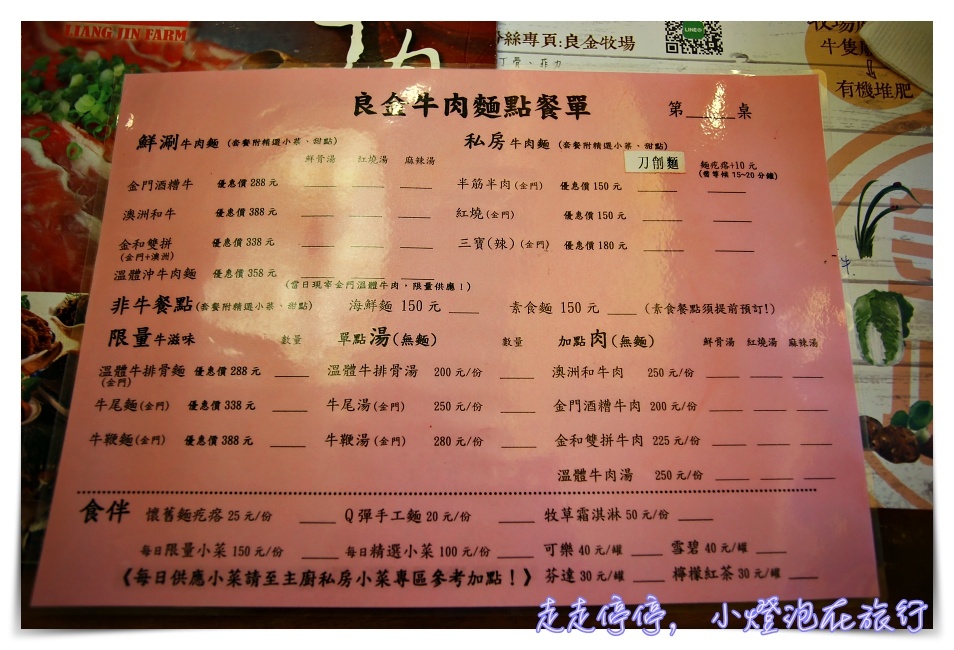 LIANG JIN FARM
絲專頁:良金牧場
丁骨、菲力
LINE@
有機堆肥
良金牛肉麵點餐單
第____桌
鮮涮牛肉麵 (套餐附精選小菜、甜點)
鮮骨湯 紅燒湯 麻辣湯
金門酒糟牛 優惠價 288 元
澳洲和牛 優惠價 388 元
金和雙拼 優惠價 338 元
(金門+澳洲)
溫體沖牛肉麵 優惠價 358 元
(當日現宰金門溫體牛肉,限量供應!)
私房牛肉麵 (套餐附精選小菜、甜點)
刀削麵
麵疙瘩+10元
(需等候 15~20 分鐘)
半筋半肉(金門) 優惠價 150 元
紅燒(金門) 優惠價 150 元
三寶(辣)(金門) 優惠價 180 元
非牛餐點(套餐附精選小菜、甜點) 海鮮麵 150 元 ____ 素食麵 150 元 ____ (素食餐點須提前預訂!)
限量牛滋味 數量
溫體牛排骨麵 優惠價 288 元
(金門)
牛尾麵(金門) 優惠價 338 元
牛鞭麵(金門) 優惠價 388 元
單點湯(無麵) 數量
溫體牛排骨湯 200 元/份
牛尾湯(金門) 250 元/份
牛鞭湯(金門) 280 元/份
加點肉(無麵) 鮮骨湯 紅燒湯 麻辣湯
澳洲和牛肉 250 元/份
金門酒糟牛肉 200 元/份
金和雙拼牛肉 225 元/份
溫體牛肉湯 250 元/份
食伴 懷舊麵疙瘩 25 元/份 ____ Q彈手工麵 20 元/份 ____ 牧草霜淇淋 50 元/份 ____
每日限量小菜 150 元/份 ____ 每日精選小菜 100 元/份 ____ 可樂 40 元/罐 ____ 雪碧 40 元/罐 ____
《每日供應小菜請至主廚私房小菜專區參考加點!》 芬達 30 元/罐 ____ 檸檬紅茶 30 元/罐 ____
走走停停,小燈泡在旅行